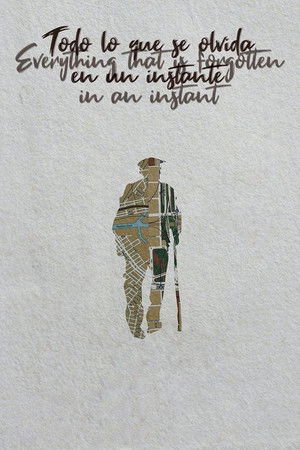 Todo lo que se olvida
Everything that is forgotten
en un instante
in an instant